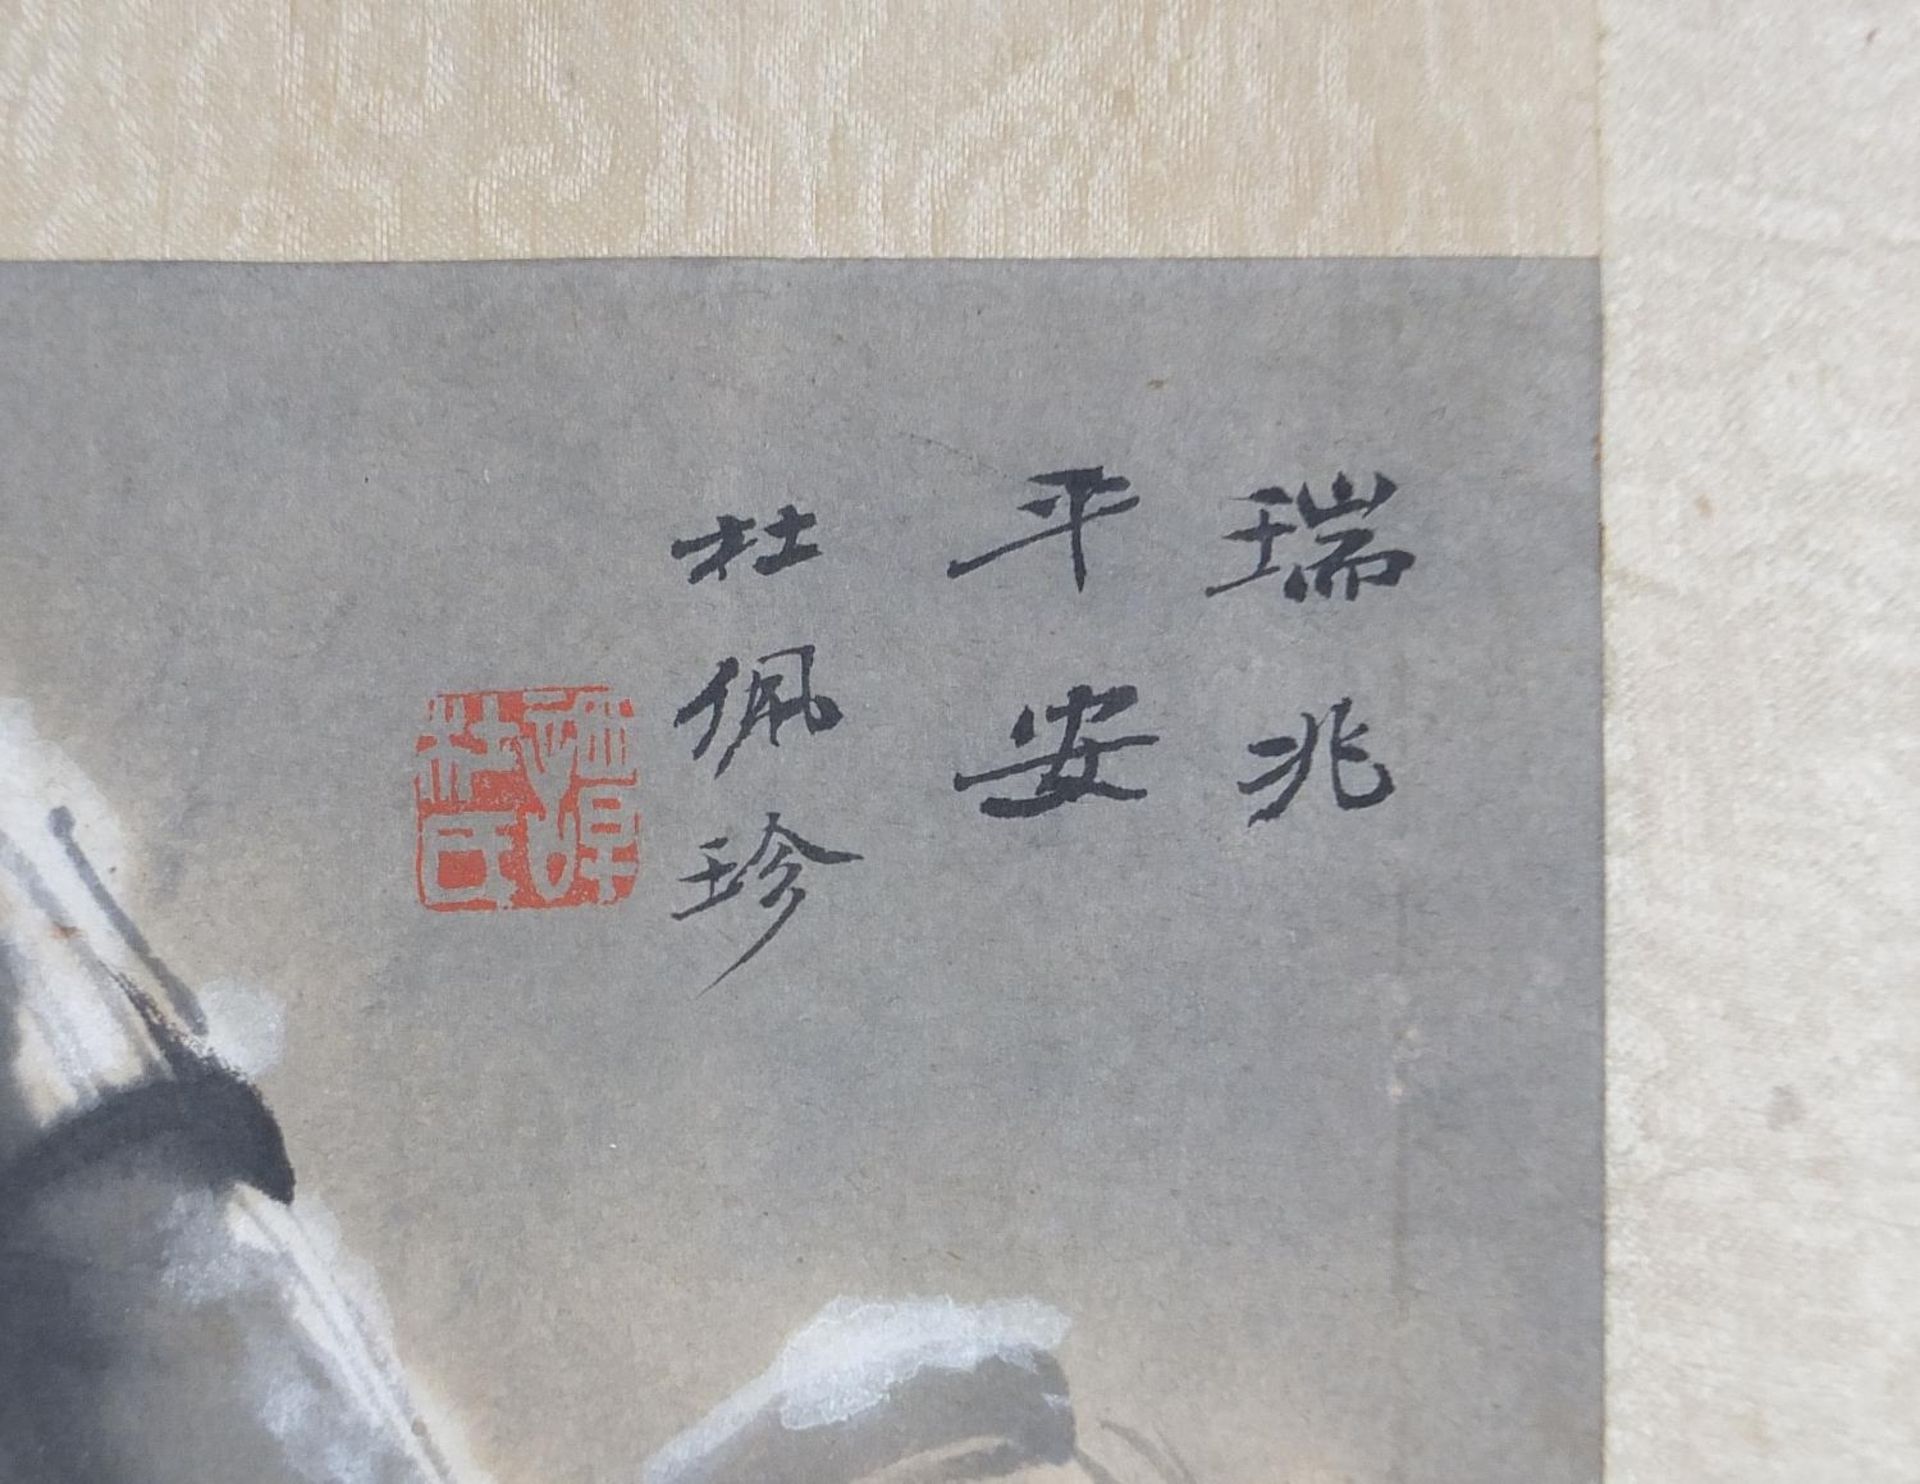 瑞兆
平安
杜佩珍